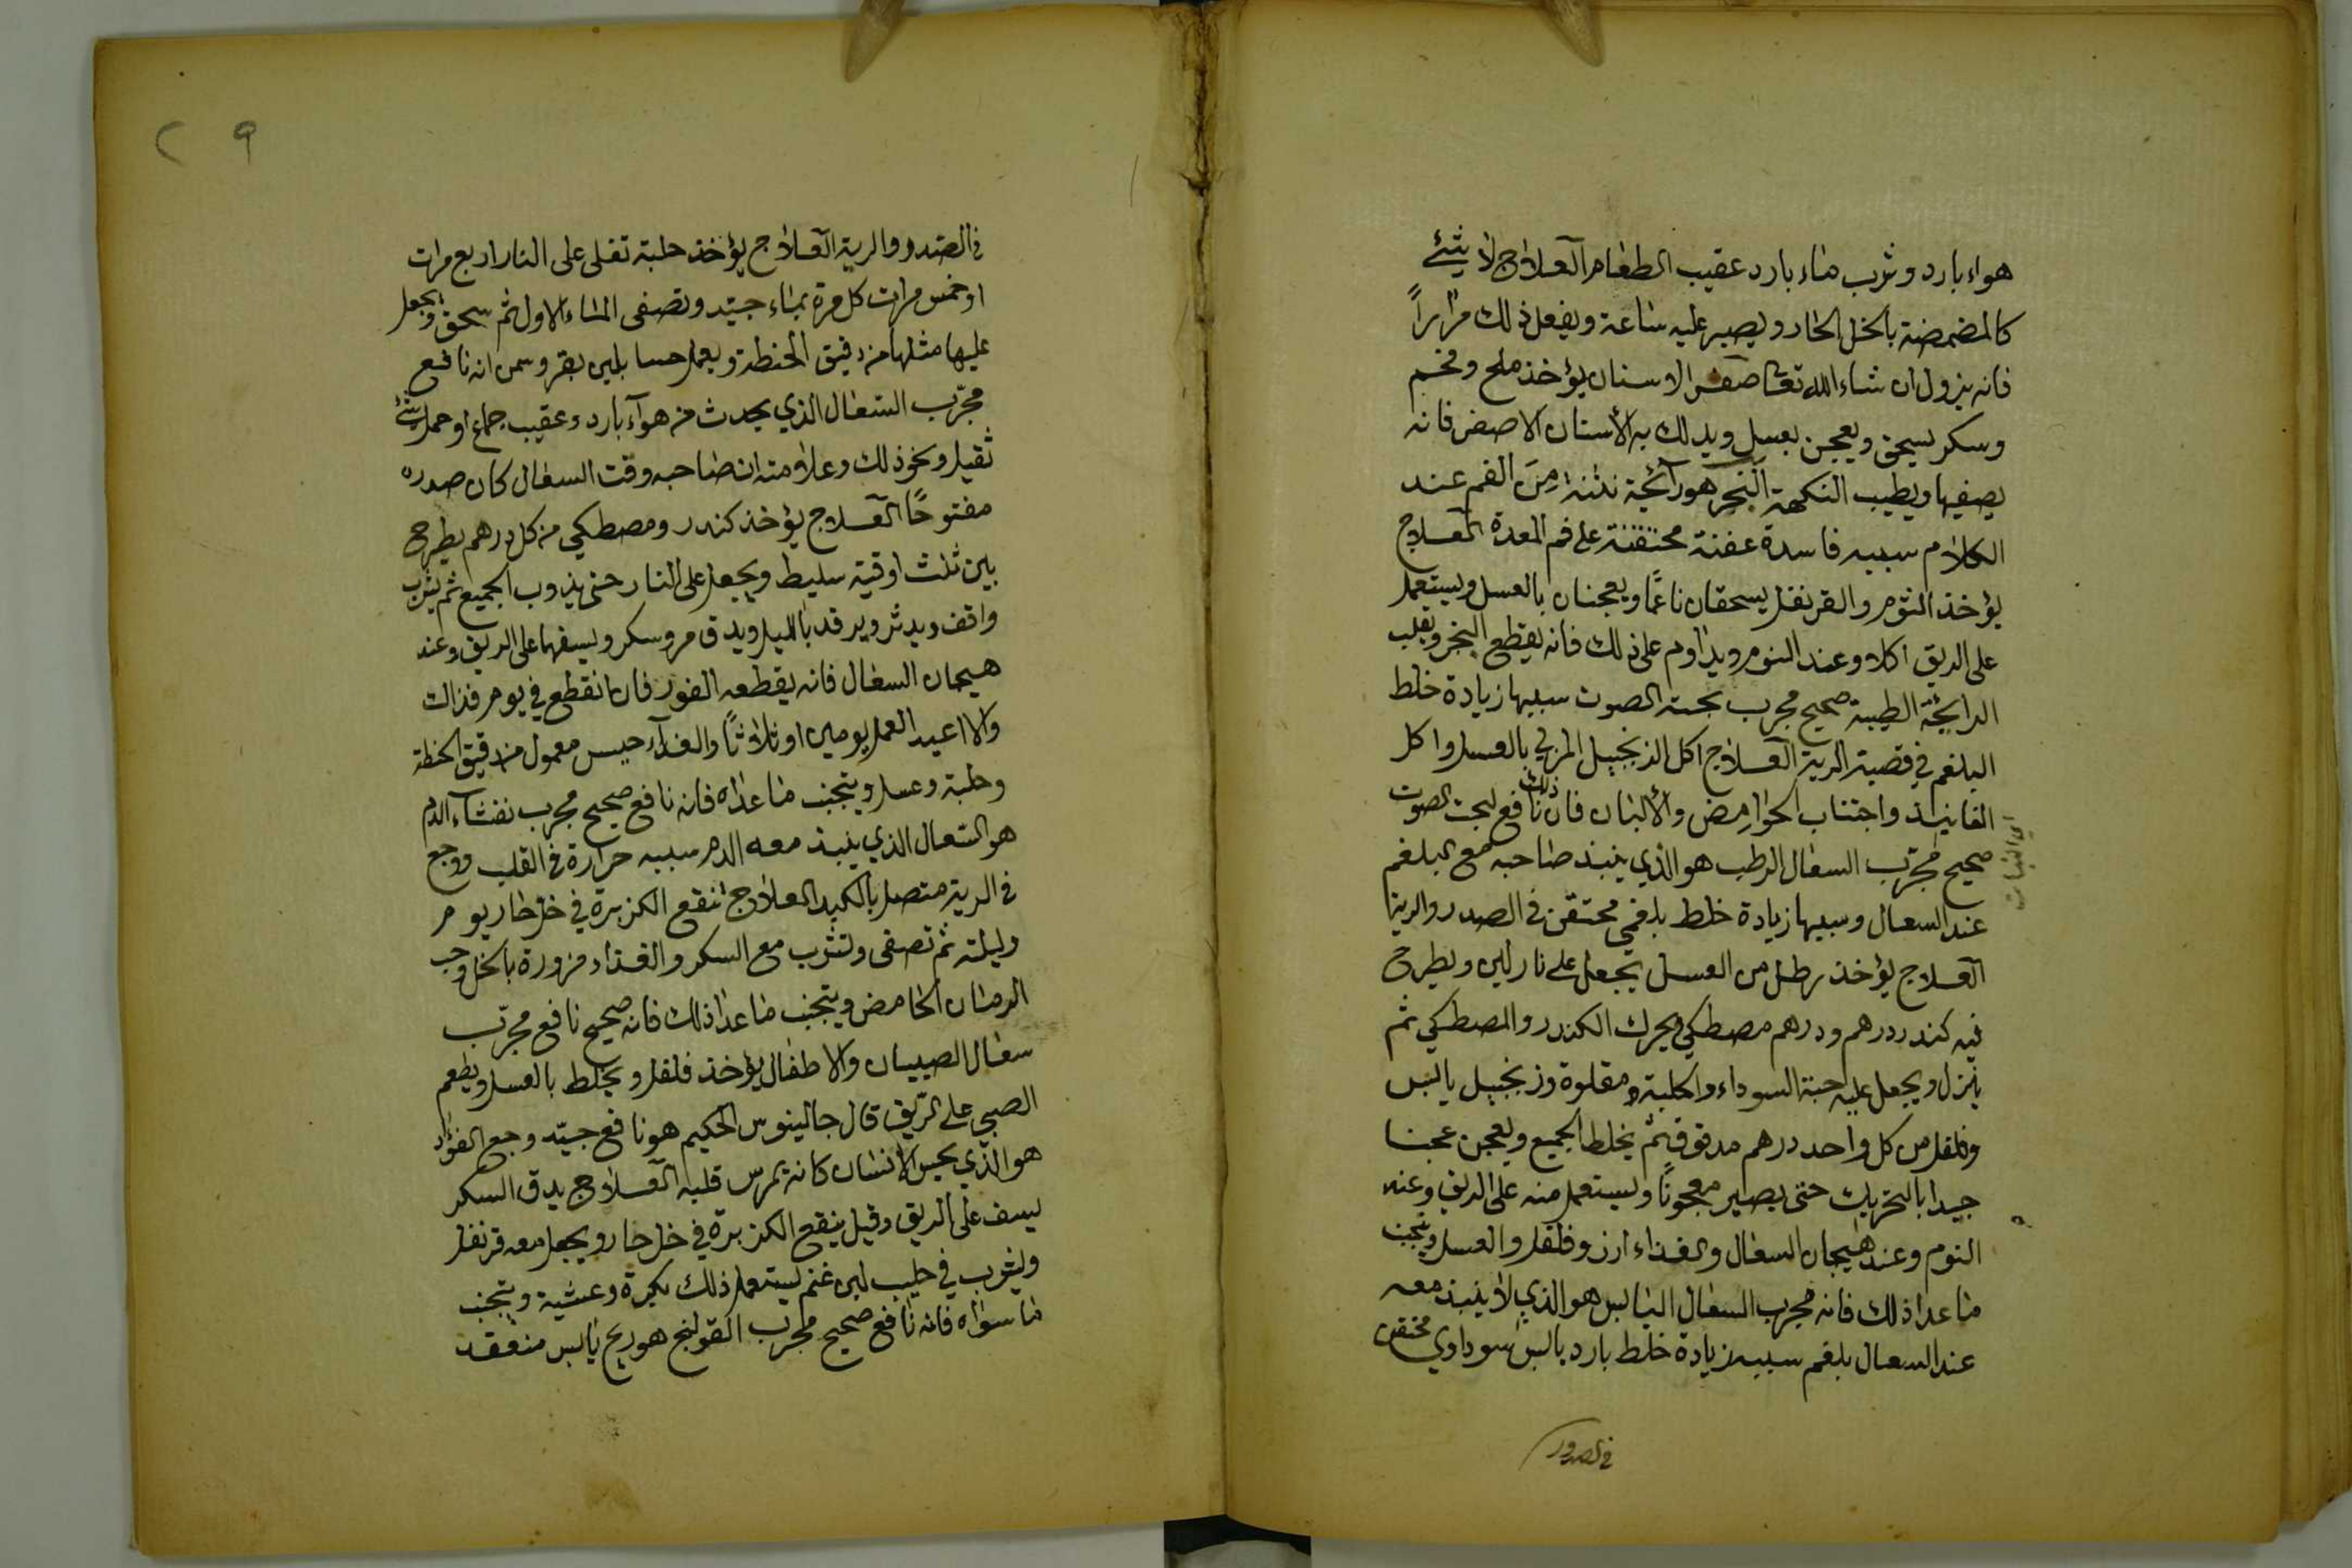 هواء بارد وشرب ماء بارد عقيب الطعام العلاج لا شئ
كالمضمضة بالخل الحار ويصبر عليه ساعة ويفعل ذلك مرارا
فانه يزول ان شاء الله تعا صفر الاسنان يؤخذ ملح وفحم
وسكر يسحق ويعجن بعسل ويدلك به الأسنان الاصفر فانه
يصفيها ويطيب النكهة البخر هو رائحة نتنة مِنَ الفم عند
الكلام سببه فاسدة عفنة محتقنة على فم المعدة العلاج
يؤخذ الثوم والقرنفل يسحقان ناعمًا ويعجنان بالعسل ويستعمل
على الريق اكلا وعند النوم ويداوم على ذلك فانه يقطع البخر ويقلب
الرايحة الطيبة صحيح مجرب بحته الصوت سببها زيادة خلط
البلغم في قصبة الرية العلاج اكل الزنجبيل المربي بالعسل واكل
الفانيذ واجتناب الحوامِض والألبان فان ذلك نافع لبحت الصوت
صحيح مجرّب السعال الرطب هو الذي ينبذ صاحبه مع البلغم
عند السعال وسببها زيادة خلط بلغمي محتقن في الصدر والرية
العلاج يؤخذ رطل من العسل يجعل على نار لين ويطرح
فيه كندر درهم ودرهم مصطكي ويحرك الكندر والمصطكي ثم
ينزل ويجعل عليه حبة السوداء والحلبة مقلوة وزنجبيل يابس
وفلفل من كل واحد درهم مدقوق ثم يخلط الجميع ويعجن عجنا
جيدا بالتحريك حتى يصير معجونًا ويستعمل منه على الريق وعند
النوم وعند هيجان السعال والغذاء ارز وفلفل والعسل ويتجنب
ما عدا ذلك فانه مجرب السعال اليابس هو الذي لا ينبذ معه
عند السعال بلغم سببه زيادة خلط بارد يابس سوداوي محتقن
في الصدور
في الصدور والرية العلاج يؤخذ حلبة تغلى على النار اربع مرات
او خمس مرات كل مرة بماء جيّد وتصفى الماء الاول ثم سحق ويجعل
عليها مثلها من دقيق الحنطة ويعمل حسا بلبن بقر وسمن انه نافع
مجرّب السعال الذي يحدث من هوآء بارد وعقيب جماع او حمل شئ
ثقيل ونحو ذلك وعلامته ان صاحبه وقت السعال كان صدره
مفتوحًا العلاج يؤخذ كندر ومصطكي من كل درهم يطرح
بين ثلث اوقية سليط ويجعل على النار حتى يذوب الجميع ثم يشرب
واقف ويدثر ويرقد بالليل ويدق مر وسكر ويسفها على الريق وعند
هيجان السعال فانه يقطعه الفور فان انقطع في يوم فذالك
والا اعيد العمل يومين او ثلاثاً والغذآء حيس معمول من دقيق الحنطة
وحلبة وعسل ويتجنب ما عداه فانه نافع صحيح مجرب نفثاء الدم
هو السّعال الذي ينبذ معه الدم سببه حرارة في القلب ووجع
في الرية متصل بالكبد العلاج انقع الكزبرة في خل حار يوم
وليلة ثم تصفى وتشرب مع السكر والغذاء مزورة بالخل وحب
الرمان الحامض ويتجنب ما عدا ذلك فانه صحيح نافع مجرّب
سعال الصبيان والاطفال يؤخذ فلفل ويخلط بالعسل ويطعم
الصبي على الرّيق قال جالينوس الحكيم هو نافع جيّد وجع الفؤاد
هو الذي يحس الأنسان كانه يمرس قلبه العلاج يدق السكر
يسف على الريق وقيل ينقع الكزبرة في خل حار ويجعل معه قرنفل
ويشرب في حليب لبن غنم يستعمل ذلك بكرة وعشية ويتجنب
ما سواه فانه نافع صحيح مجرب القولنج هو ريح يابس منعقد